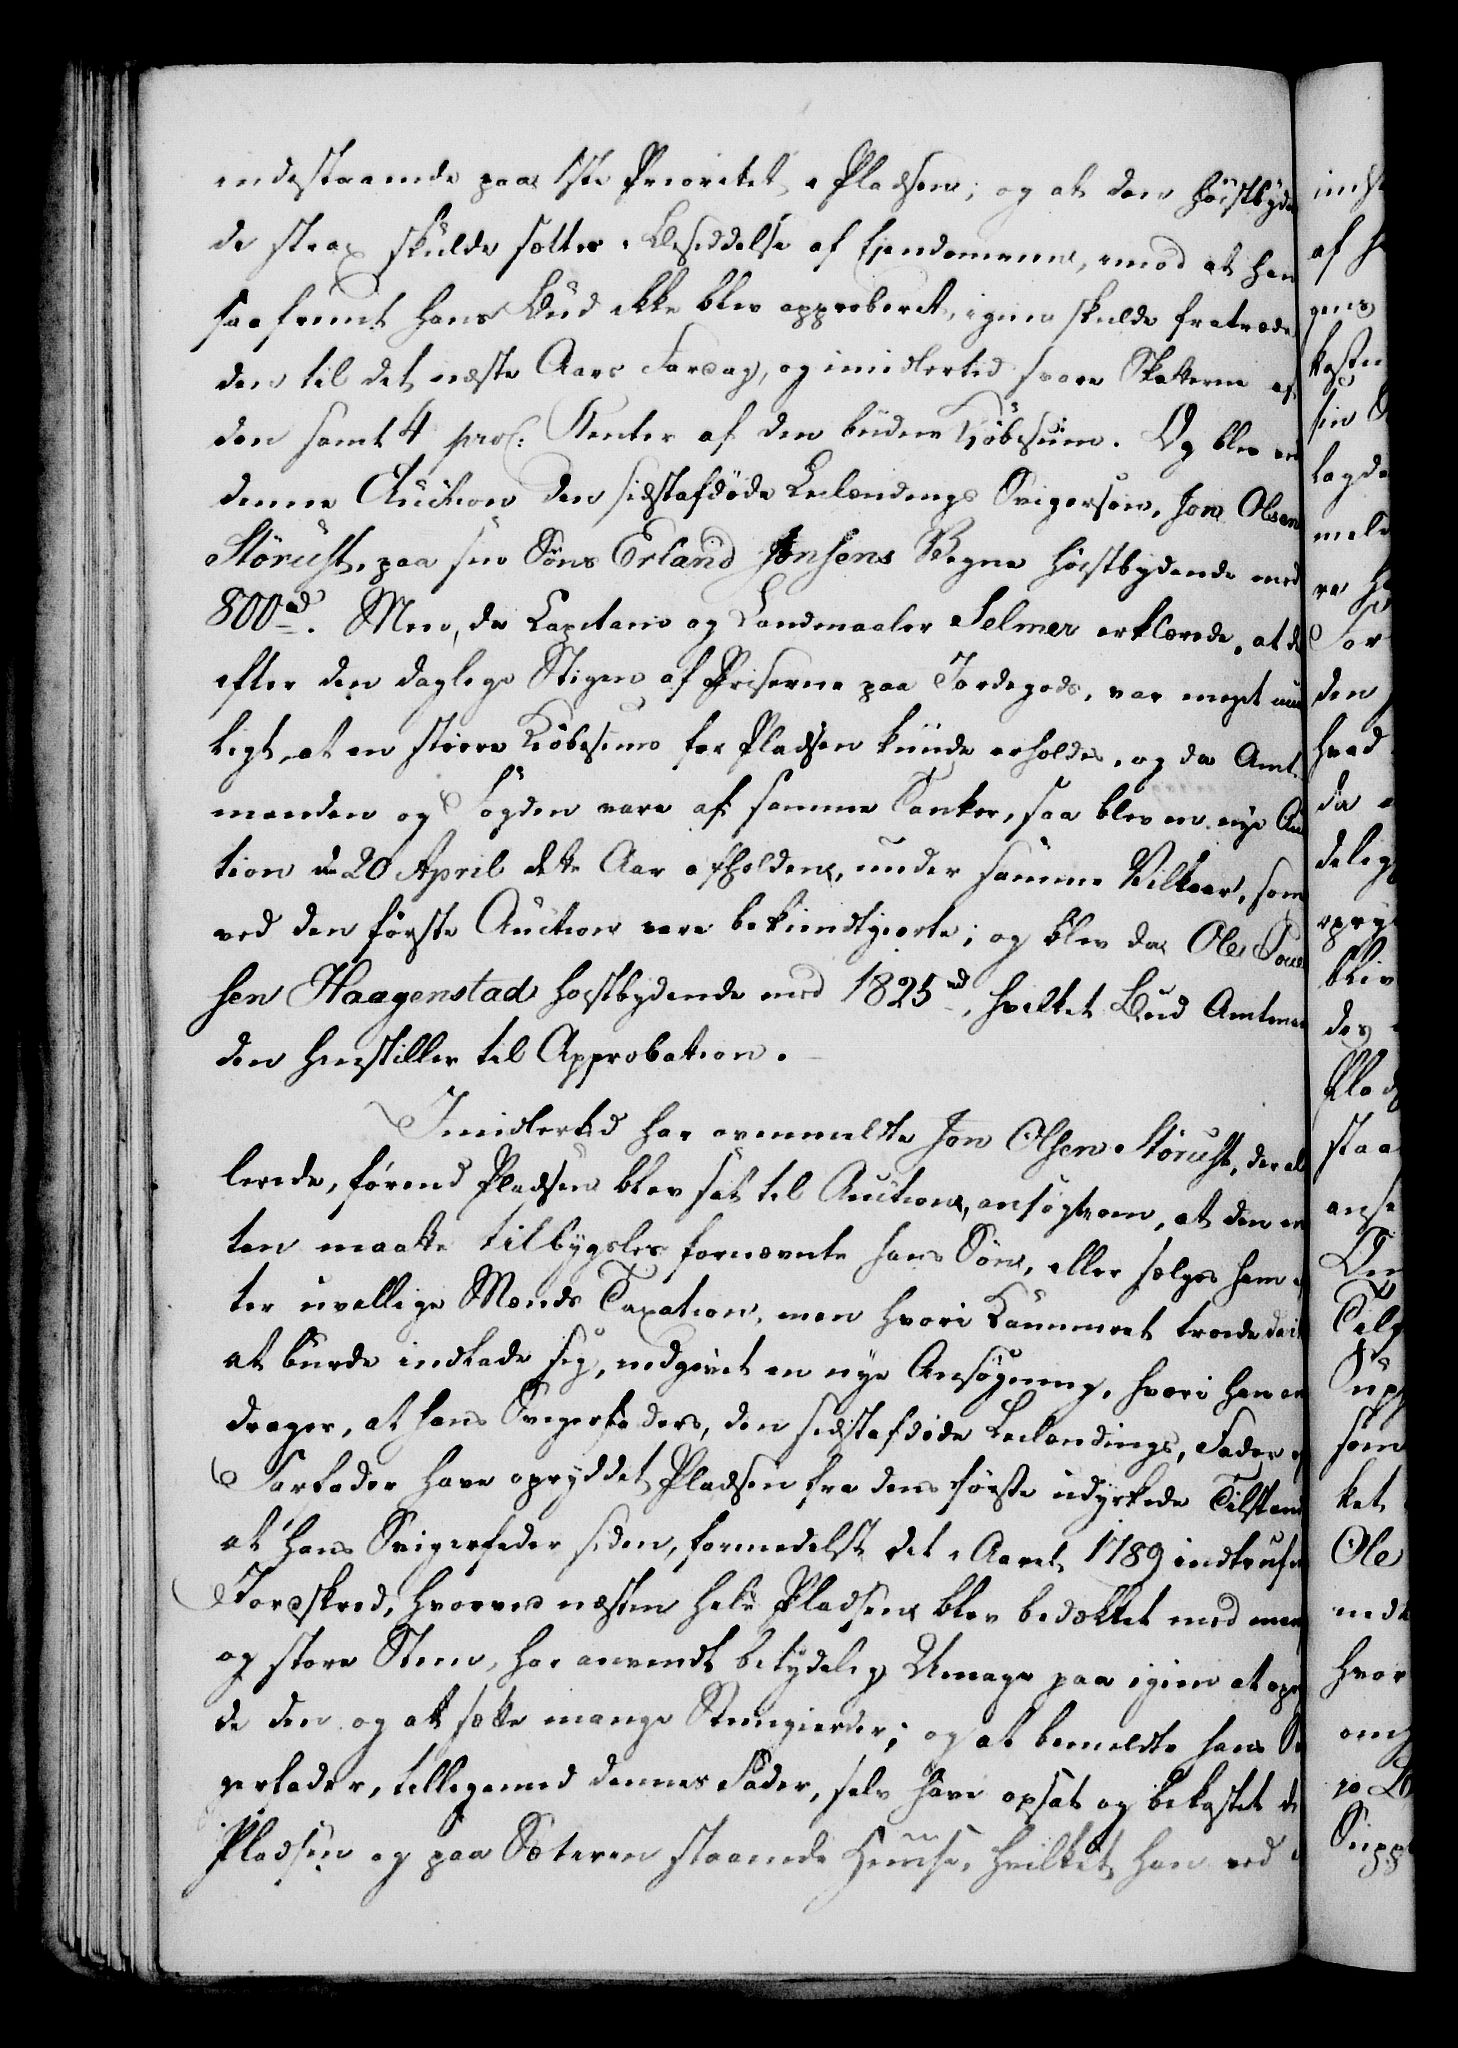 indestaaende paa 1ste Prioritet i Pladsen; og at den høistbyden
de strax skulde sættes i Besiddelse af Ejendommen, imod at han
saafremt hans Bud ikke blev approberet, igien skulde fratræde
den til det næste Aars Fardag, og imidlertid svare Skatterne af
den samt 4 proC: Renter af den budne Kiøbesum. Og blev ved
denne Auction den sidstafdøde Leilændings Svigersøn, Jon Olsen
Störust, paa sin Søns Erland Jonsens Vegne høistbydende med
800 rd. Men, da Capitain og Landmaaler Selmer erklærede, at d
efter den daglige Stigen af Priserne paa Jordegods, var meget rime
ligt, at en større Kiøbesum for Pladsen kunde erholdes, og da Amt-
manden og Fogden vare af samme Tanker, saa blev en nye Auc
tion den 20 April dette Aar afholden, under samme Vilkaar, som
ved den første Auction vare bekiendtgiorte; og blev da Ole Poul
sen Haagenstad høistbydende med 1825 rd, hvilket Bud Amtman
den henstiller til Approbation.
Imidlertid har ovenmeldte Jon Olsen Störust, der al
lerede, førend Pladsen blev sat til Auction, ansøgte om, at den en
ten maatte tilbygsles fornævnte hans Søn, eller sælges ham ef
ter uvillige Mænds Taxation, men hvori Kammeret troede ikke
at burde indlade sig, indgivet en nye Ansøgning, hvori han an
drager, at hans Svigerfaders, den sidstafdøde Leilændings, Fader og
Farfader have opryddet Pladsen fra dens første udyrkede Tilstand
at hans Svigerfader siden, formedelst det i Aaret 1789 indtrufne
Jordskred, hvorved næsten hele Pladsen blev bedækket med mange
og store Stene, har anvendt betydelig Umage paa igien at opryd
de den og at sætte mange Steengierder; og at bemeldte hans Svi
gerfader, tilligemed dennes Fader, selv have opsat og bekostet de
Pladsen og paa Sæteren staaende Huuse, hvilket han ved